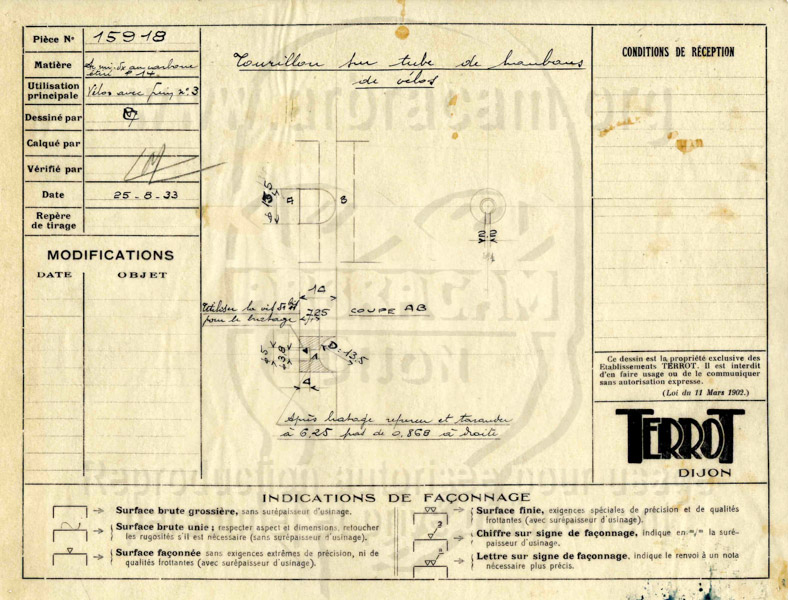 Pièce No 15918
Matière
Utilisation
principale
Vélos avec frein no 3
Dessiné par
Calqué par
Vérifié par
Date 25-8-33
Repère
de tirage
MODIFICATIONS
DATE OBJET
Tourillon sur tube de haubans
de vélos
A B
14
7,25
COUPE AB
pour le brasage
D=13,5
Après brasage repercer et tarauder
à 6,25 pas de 0,868 à droite
CONDITIONS DE RÉCEPTION
Ce dessin est la propriété exclusive des
Etablissements TERROT. Il est interdit
d'en faire usage ou de le communiquer
sans autorisation expresse.
(Loi du 11 Mars 1902.)
TERROT
DIJON
INDICATIONS DE FAÇONNAGE
Surface brute grossière, sans surépaisseur d'usinage.
Surface brute unie ; respecter aspect et dimensions, retoucher
les rugosités s'il est nécessaire (sans surépaisseur d'usinage).
Surface façonnée sans exigences extrêmes de précision, ni de
qualités frottantes (avec surépaisseur d'usinage).
Surface finie, exigences spéciales de précision et de qualités
frottantes (avec surépaisseur d'usinage).
3
Chiffre sur signe de façonnage, indique en m/m la suré-
paisseur d'usinage.
Lettre sur signe de façonnage, indique le renvoi à un nota
nécessaire plus précis.
www.arbracam.org
ARBRACAM
DIJON
Reproduction autorisée pour usage